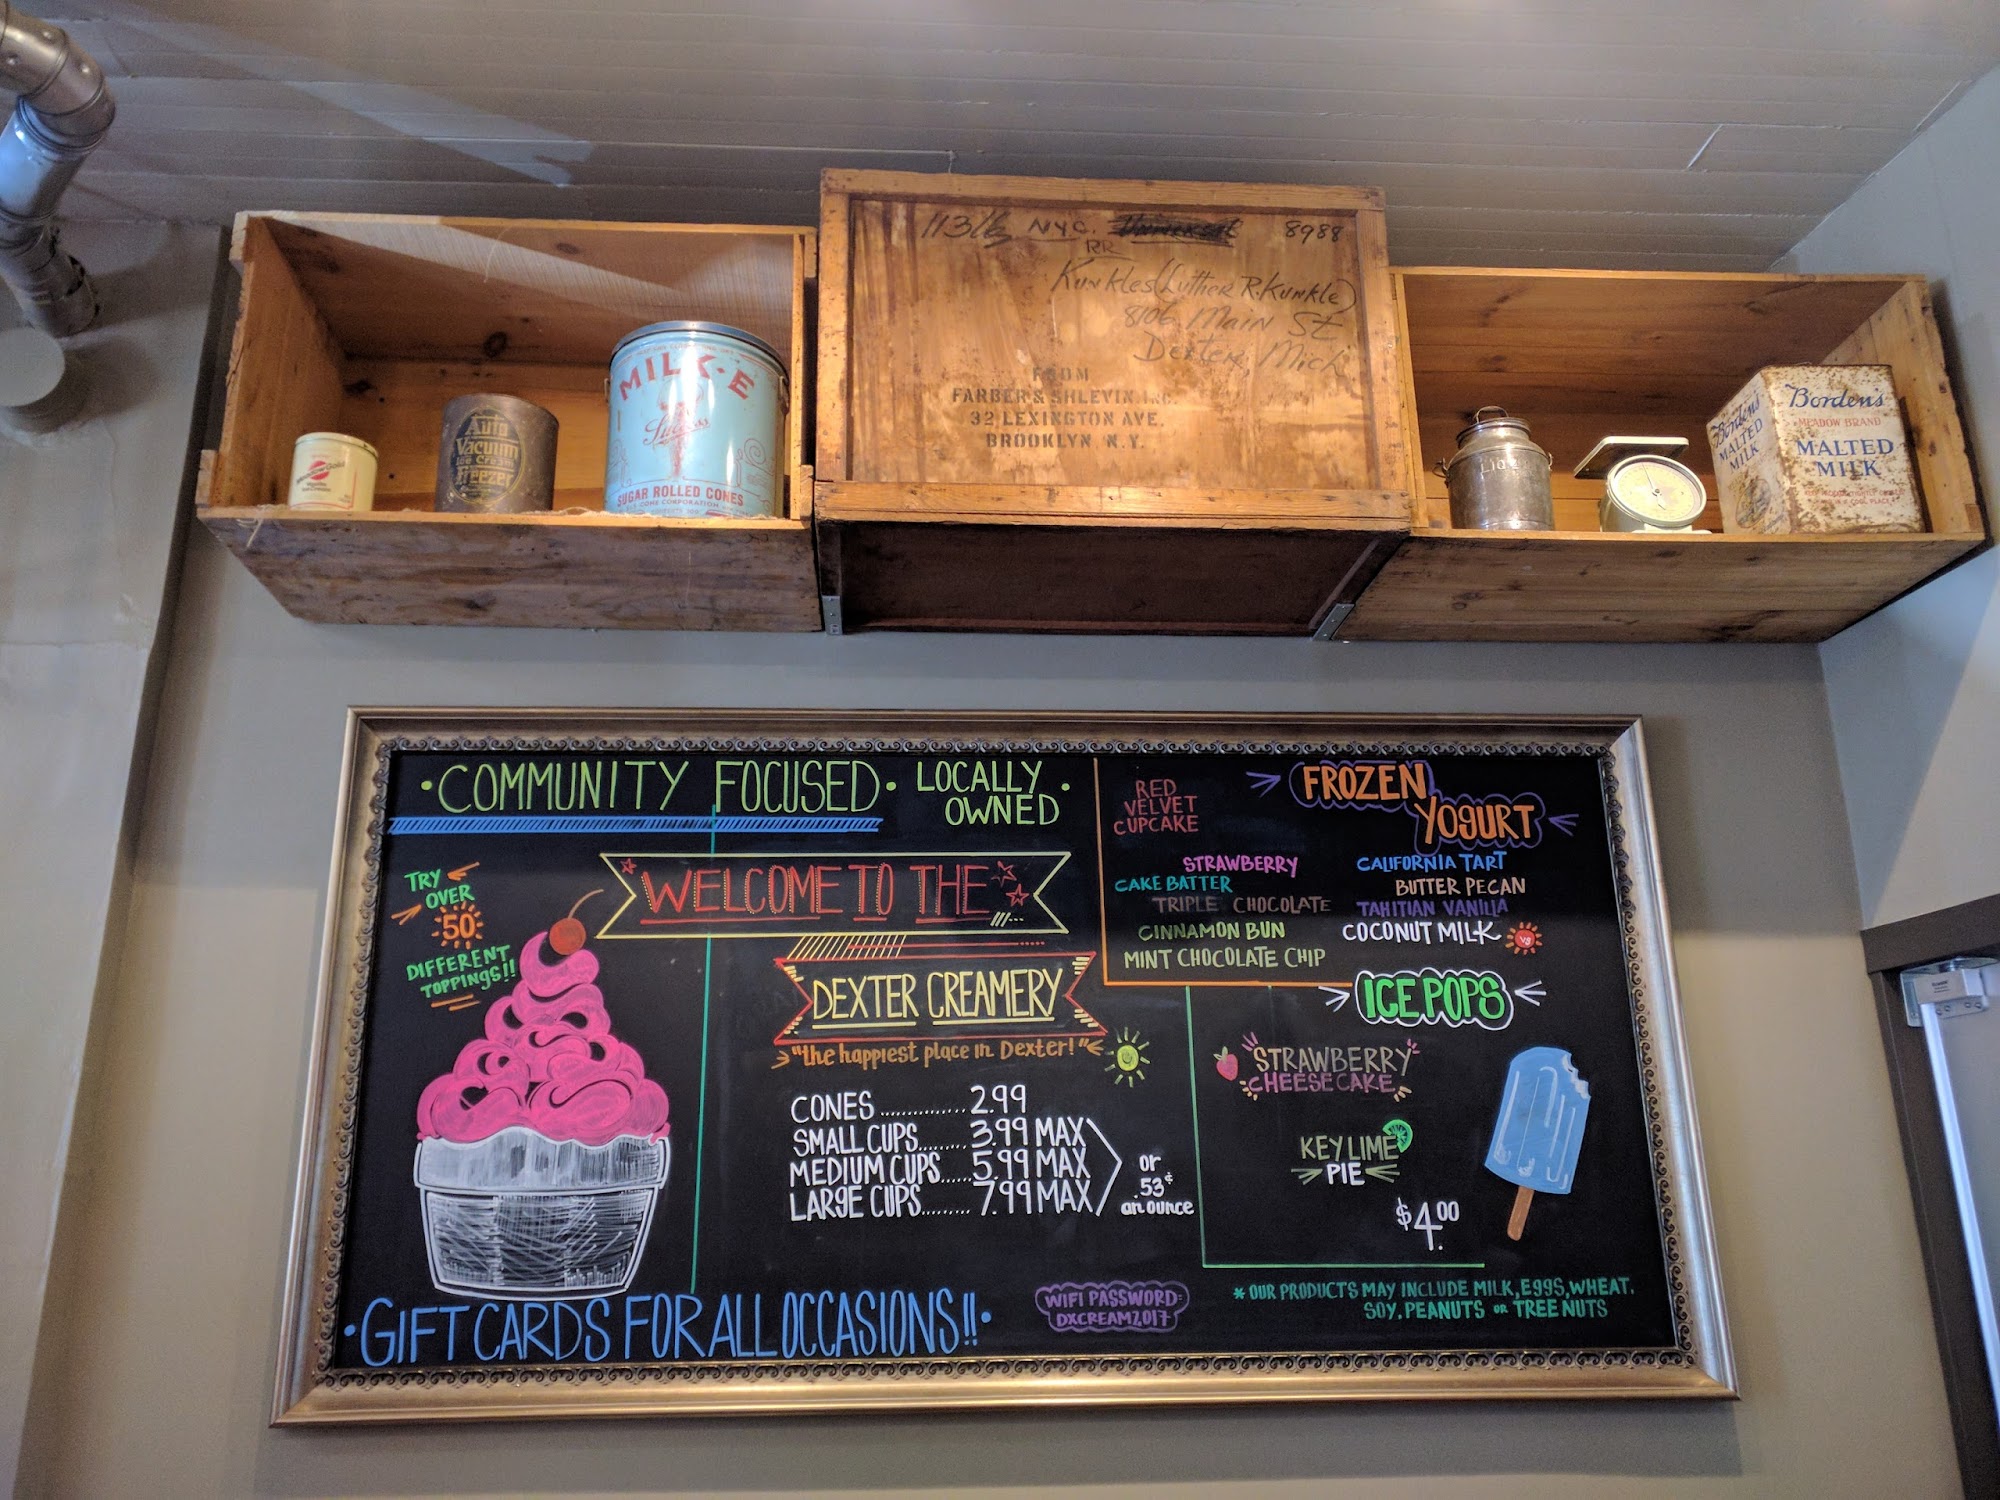 113lb NYC. 8988
RR
Kunkles (Luther R. Kunkle)
8106 Main St
Dexter, Mich
FROM
FARBER & SHLEVIN, INC.
32 LEXINGTON AVE.
BROOKLYN, N.Y.
Meadow Gold
Auto
Vacuum
Ice Cream
Freezer
MILK-E
SUGAR ROLLED CONES
CONE CORPORATION
Borden's
MALTED
MILK
Borden's
MEADOW BRAND
MALTED
MILK
• COMMUNITY FOCUSED • LOCALLY OWNED •
TRY
OVER
50
DIFFERENT
TOPPINGS!!
WELCOME TO THE
DEXTER CREAMERY
"the happiest place in Dexter!"
CONES .............. 2.99
SMALL CUPS........ 3.99 MAX
MEDIUM CUPS...... 5.99 MAX
LARGE CUPS......... 7.99 MAX
or
.53¢
an ounce
FROZEN
YOGURT
RED
VELVET
CUPCAKE
STRAWBERRY
CAKE BATTER
TRIPLE CHOCOLATE
CINNAMON BUN
MINT CHOCOLATE CHIP
CALIFORNIA TART
BUTTER PECAN
TAHITIAN VANILLA
COCONUT MILK
ICE POPS
STRAWBERRY
CHEESECAKE
KEY LIME
PIE
$4.00
• GIFT CARDS FOR ALL OCCASIONS!! •
WIFI PASSWORD:
DXCREAM2017
* OUR PRODUCTS MAY INCLUDE MILK, EGGS, WHEAT.
SOY, PEANUTS or TREE NUTS